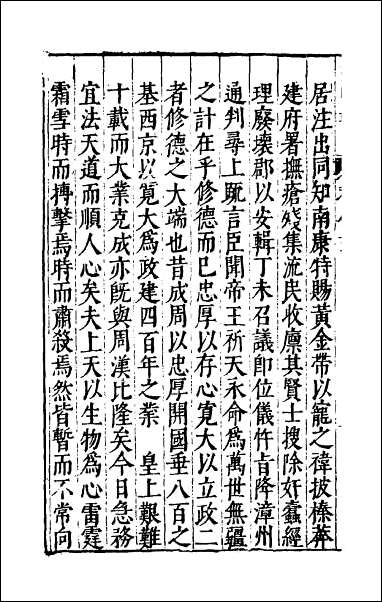 居注出同知南康特賜黃金帶以寵之禕披榛莽
建府署撫瘡殘集流民收廪其賢士搜除奸蠹經
理廢壞郡以安輯丁未召議即位儀忤旨降漳州
通判尋上䟽言臣聞帝王祈天永命爲萬世無疆
之計在乎修德而已忠厚以存心寛大以立政二
者修德之大端也昔成周以忠厚開國垂八百之
基西京以寛大爲政建四百年之業　皇上艱難
十載而大業克成亦旣與周漢比隆矣今日急務
宜法天道而順人心矣夫上天以生物爲心雷霆
霜雪時而摶擊焉時而肅殺焉然皆暫而不常向